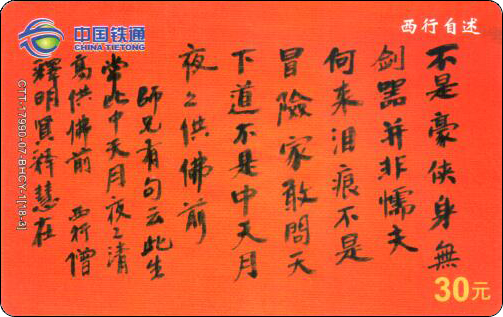 中国铁通
CHINA TIETONG
西行自述
不是豪侠身無
劍器并非懦夫
何来泪痕不是
冒險家敢問天
下道不是中天月
夜々供佛前
師兄有句云此生
常此中天月夜々清
高供佛前 西行僧
釋明賢釋慧在
CTT-17990-07-BHCY-1(18-3)
30元